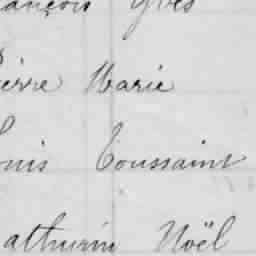 ançois Yves
ierre Marie
ouis Toussaint
athurin Noël